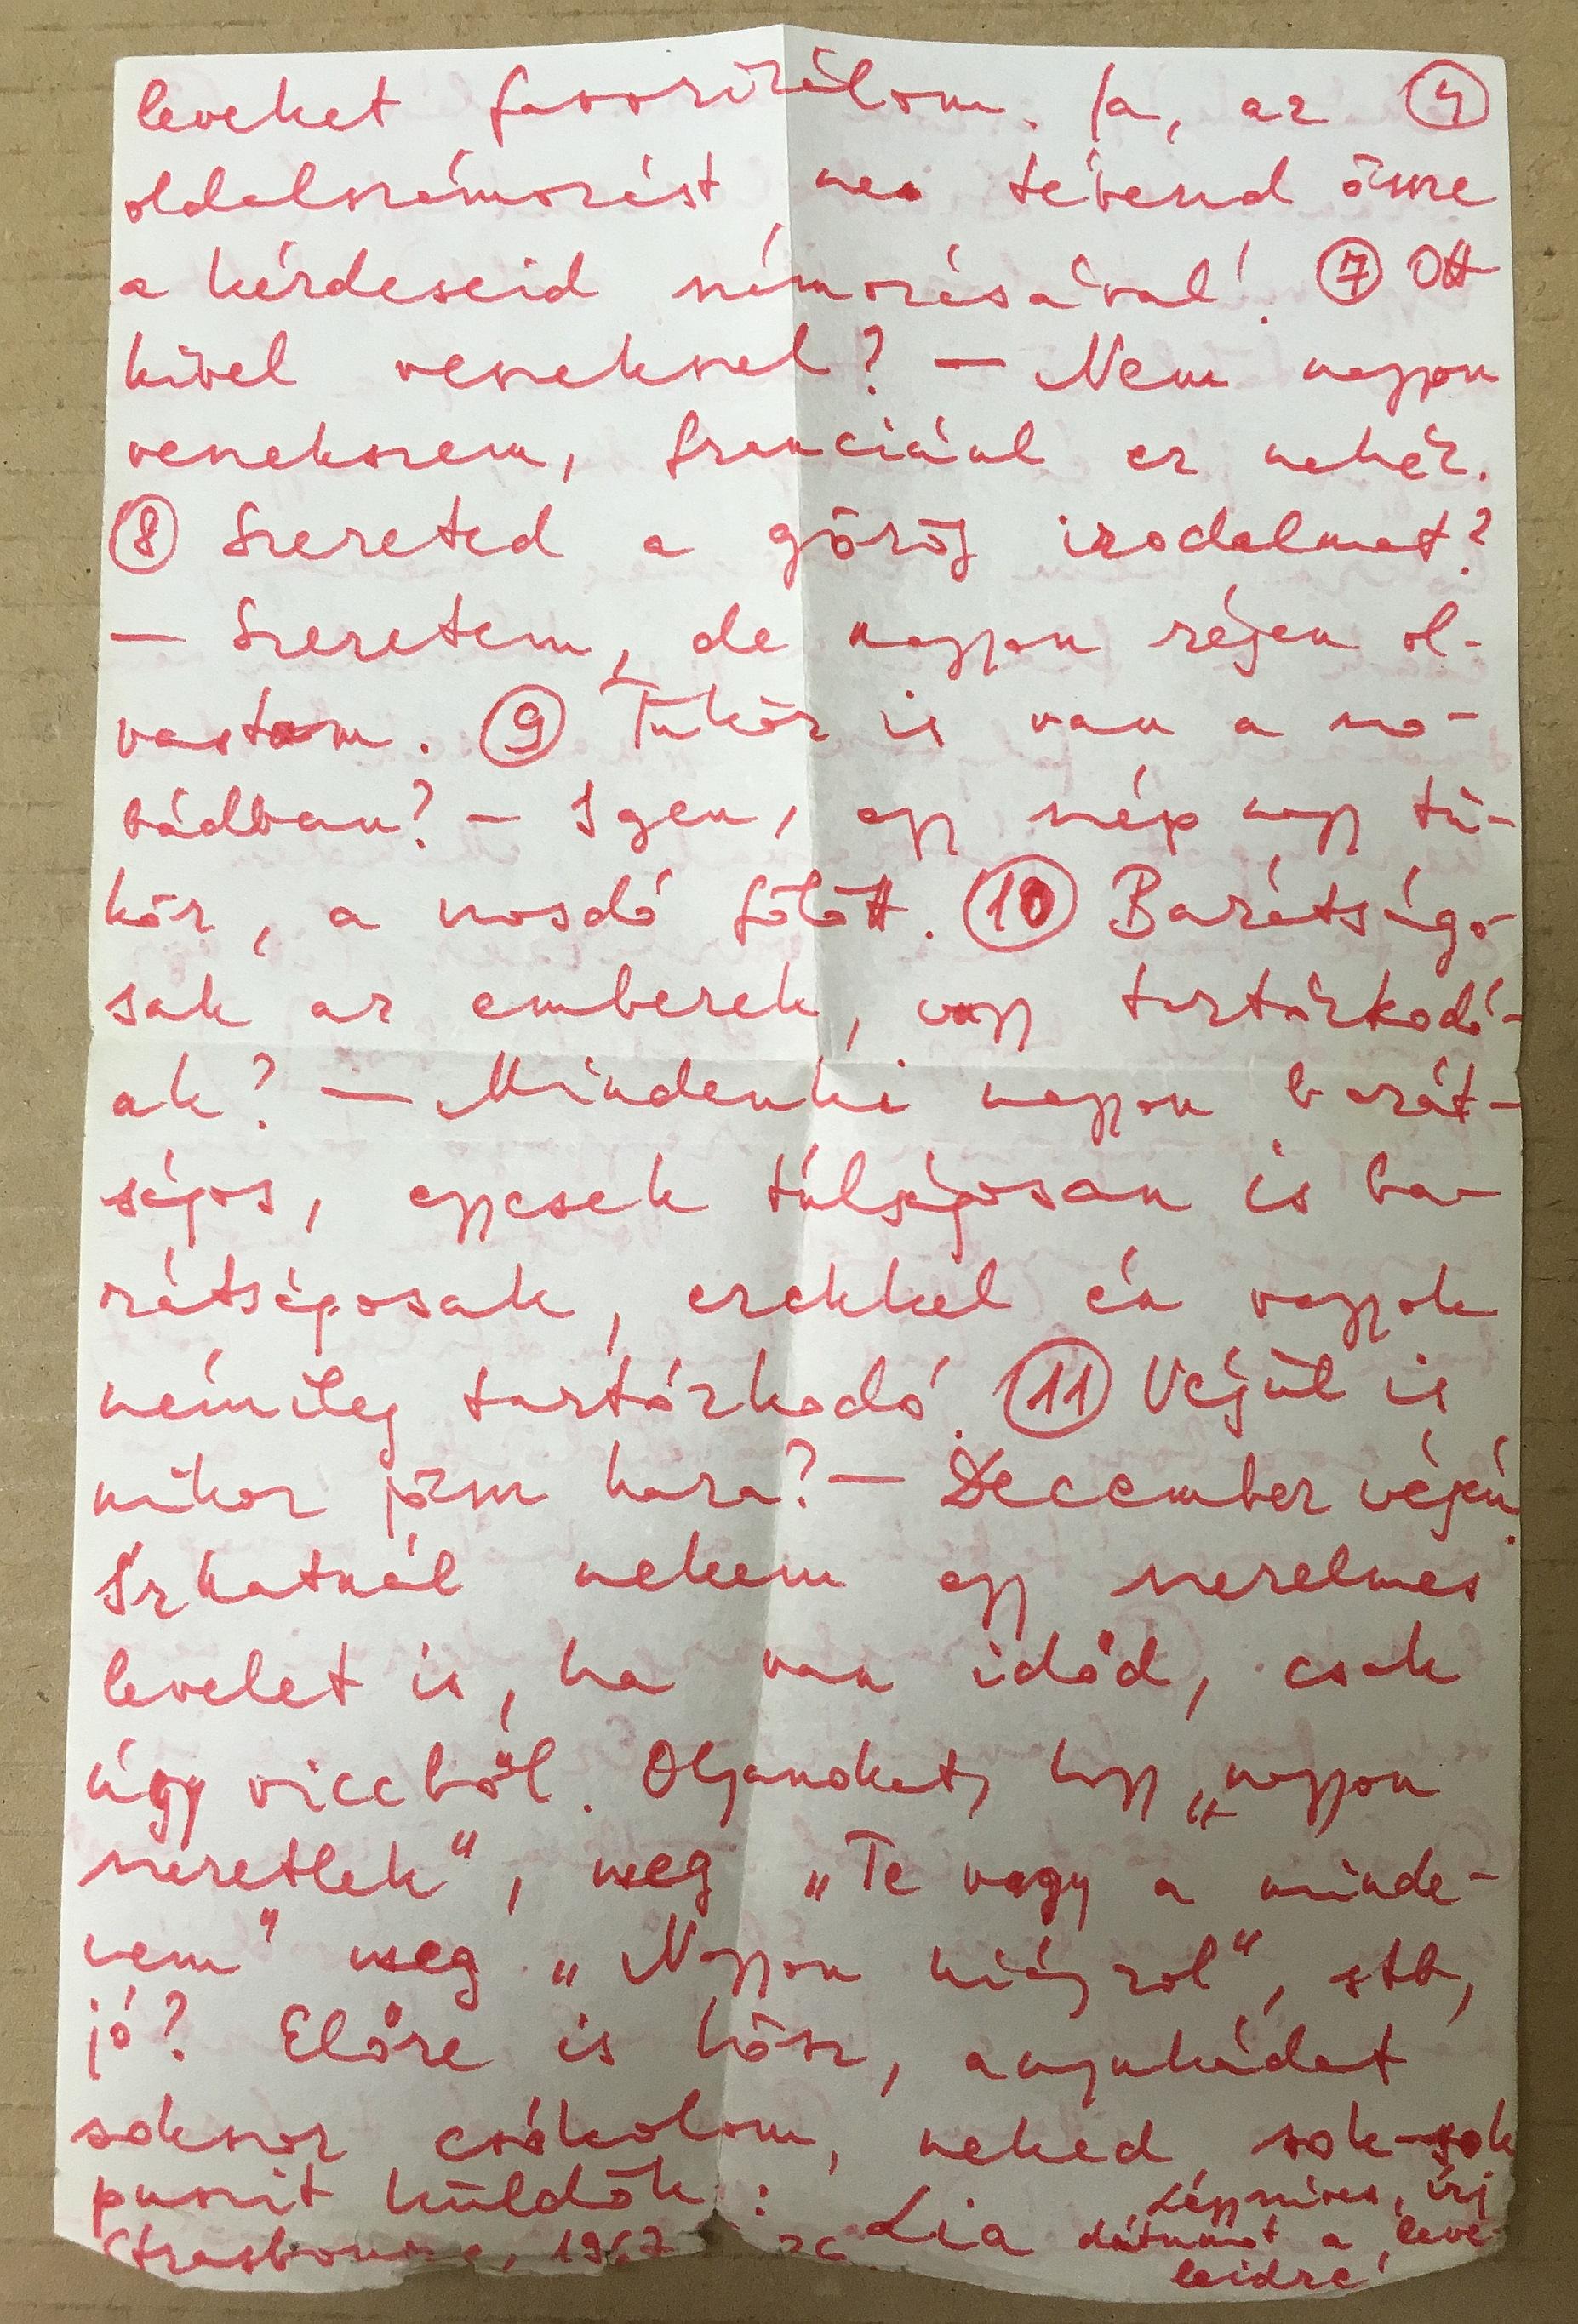 leveket favorizálom. Ja, az ④
oldalszámozást ne tévesd össze
a kérdéseid számozásával! ⑦ Ott
kivel veszekszel? — Nem nagyon
veszekszem, franciául ez nehéz.
⑧ Szereted a görög irodalmat?
— Szeretem, de nagyon régen ol-
vastam. ⑨ Tükör is van a szo-
bádban? — Igen, egy szép nagy tü-
kör, a mosdó fölött. ⑩ Barátságo-
sak az emberek, vagy tartózkodó-
ak? — Mindenki nagyon barát-
ságos, egyesek túlságosan is ba-
rátságosak, ezekkel én vagyok
némileg tartózkodó. ⑪ Végül is
mikor jössz haza? — December végén.
Írhatnál nekem egy szerelmes
levelet is, ha van időd, csak
úgy viccből. Olyanokat, hogy „nagyon
szeretlek", meg „Te vagy a minde-
nem" meg „Nagyon hiányzol", stb,
jó? Előre is kösz, anyukádat
sokszor csókolom, neked sok-sok
puszit küldök: Lia
Strasbourg, 1967 26
Légyszíves, írj
dátumot a leve-
leidre!